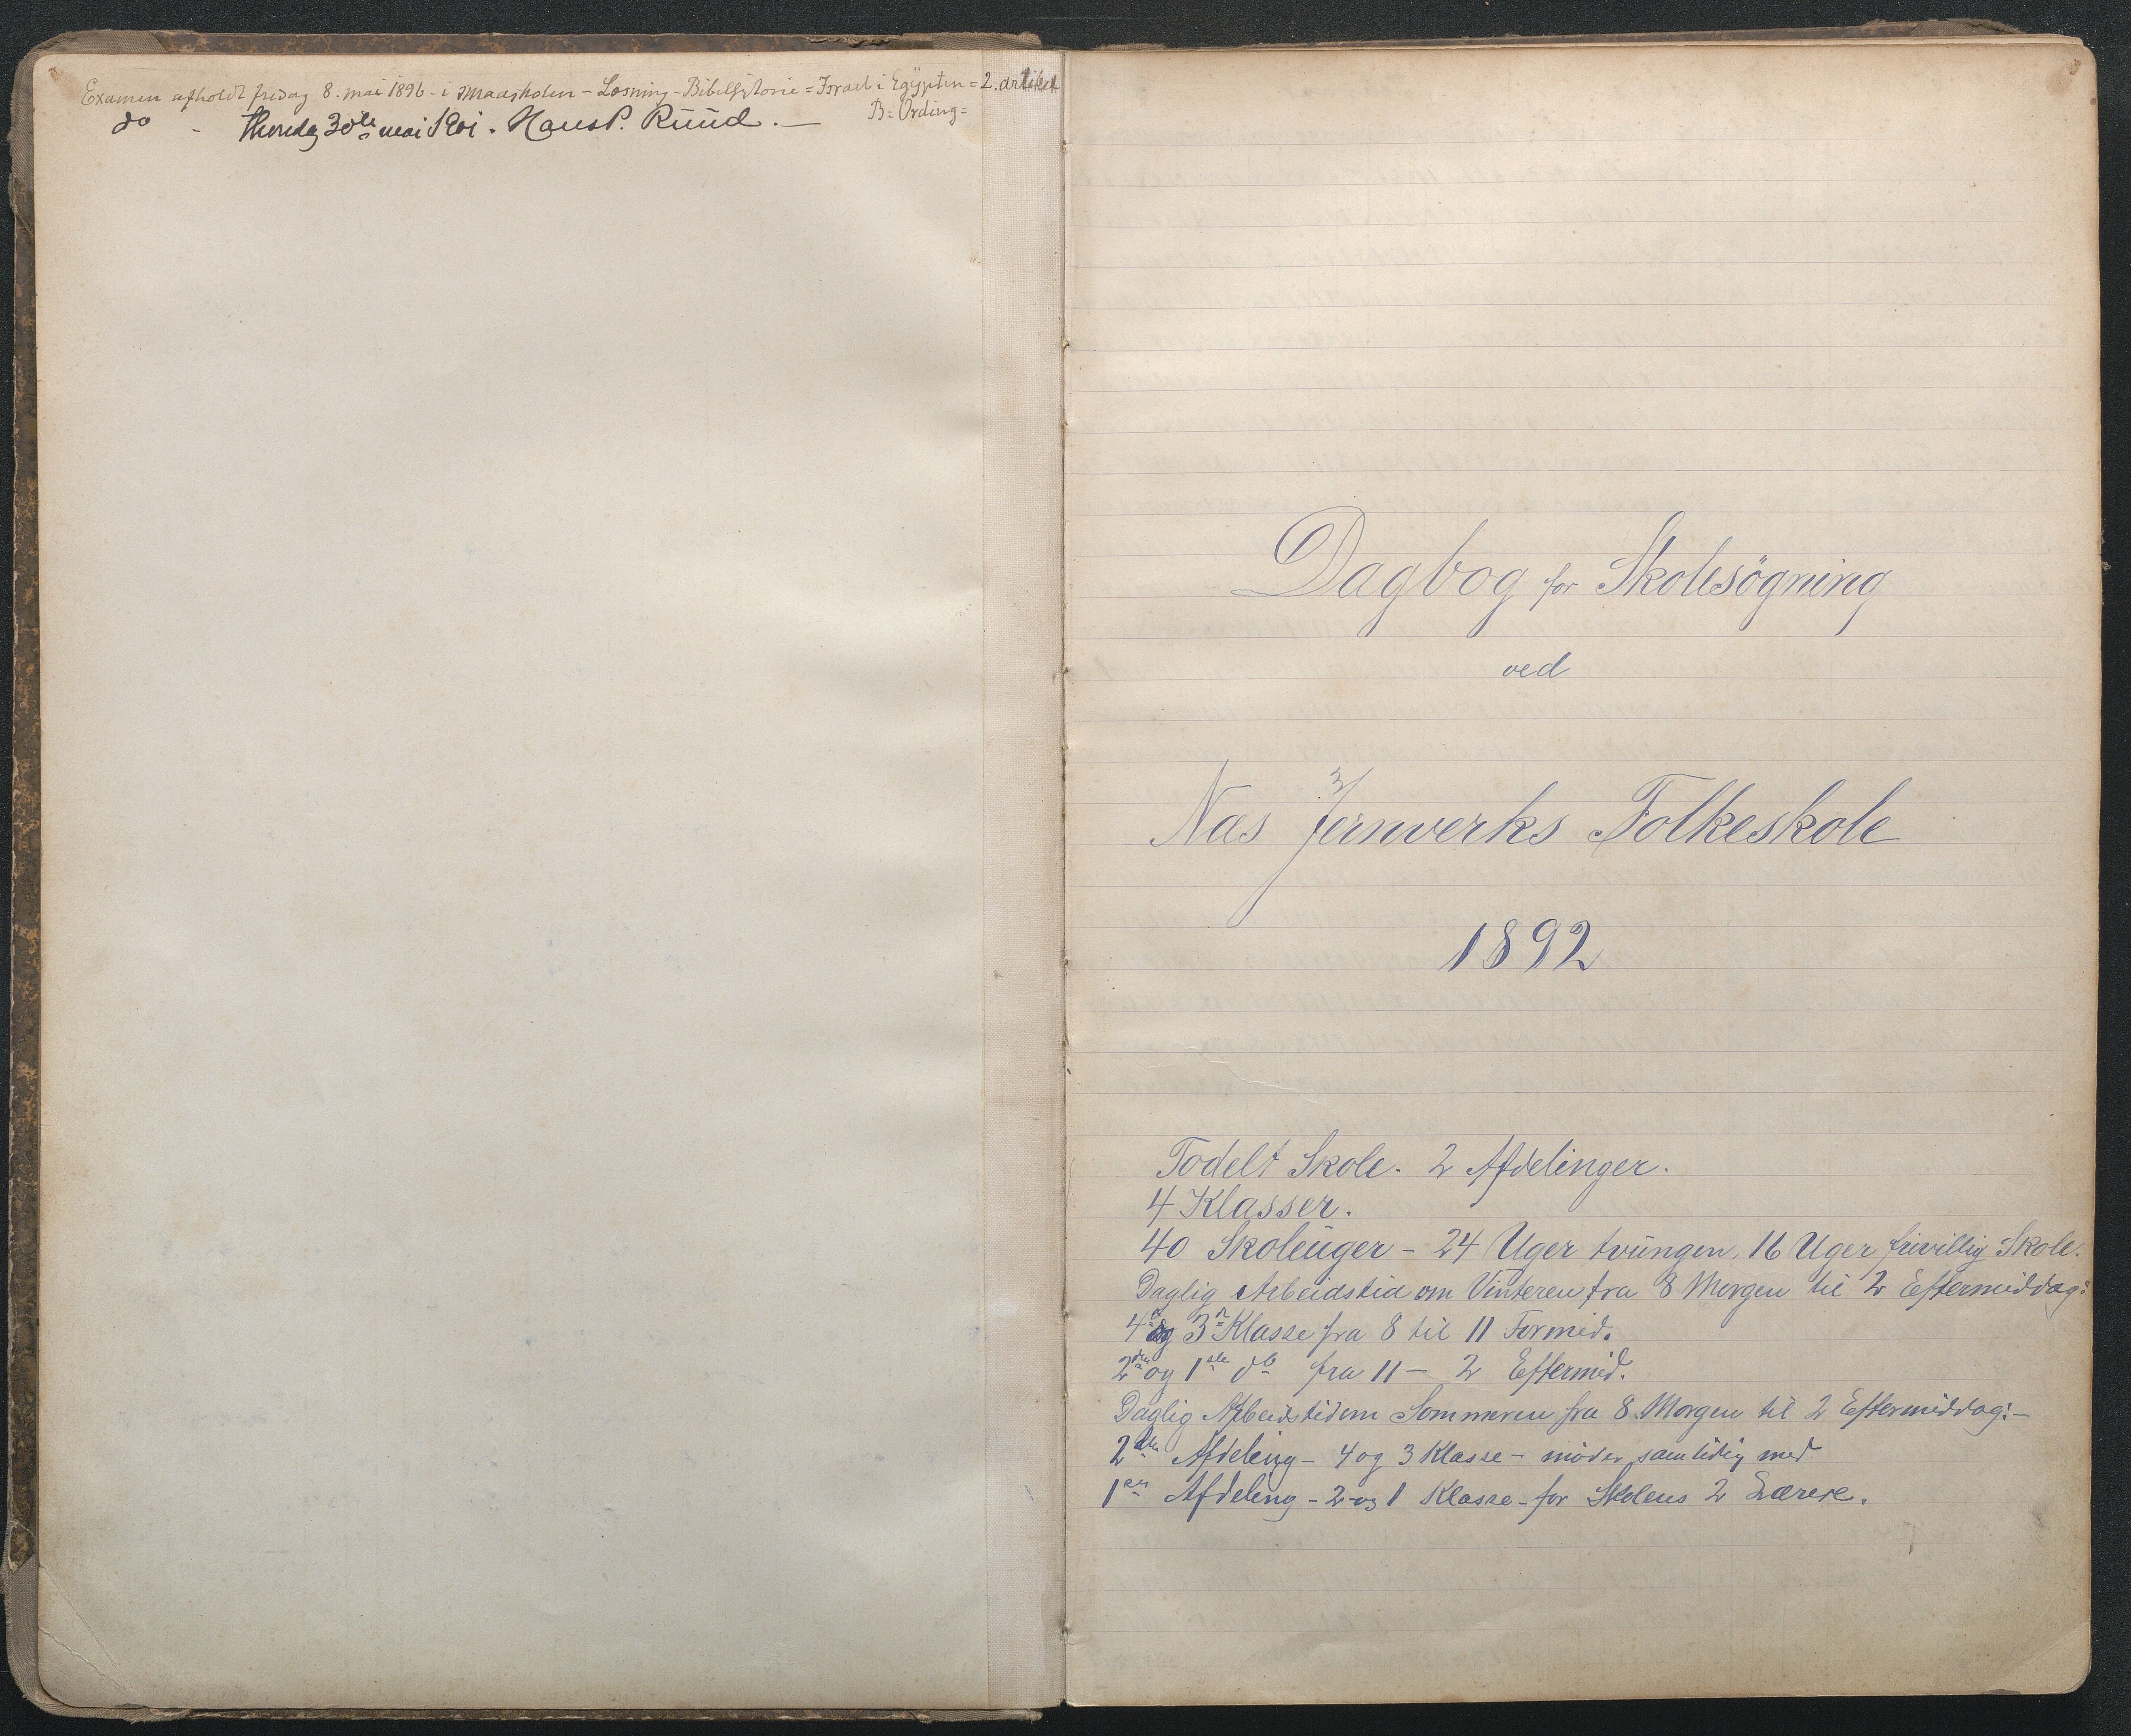 Examen afholdt fredag 8. mai 1896 - i smaaskolen - Læsning - Bibelhistorie = Israel i Egypten = 2. artikel
B= Ording=
do - Thorsdag 30te mai 1901. Hans P. Ruud. —
Dagbog for Skolesögning
ved
Næs Jernverks Folkeskole
1892
Todelt Skole. 2 Afdelinger.
4 Klasser.
40 Skoleuger - 24 Uger tvungen, 16 Uger frivillig Skole.
Daglig Arbeidstid om Vinteren fra 8 Morgen til 2 Eftermiddag:
4de og 3die Klasse fra 8 til 11 Formid.
2den og 1ste do fra 11 - 2 Eftermid.
Daglig Arbeidstid om Sommeren fra 8 Morgen til 2 Eftermiddag:-
2den Afdeling - 4 og 3 Klasse - möder samtidig med
1ste Afdeling - 2 og 1 Klasse - for Skolens 2 Lærere.